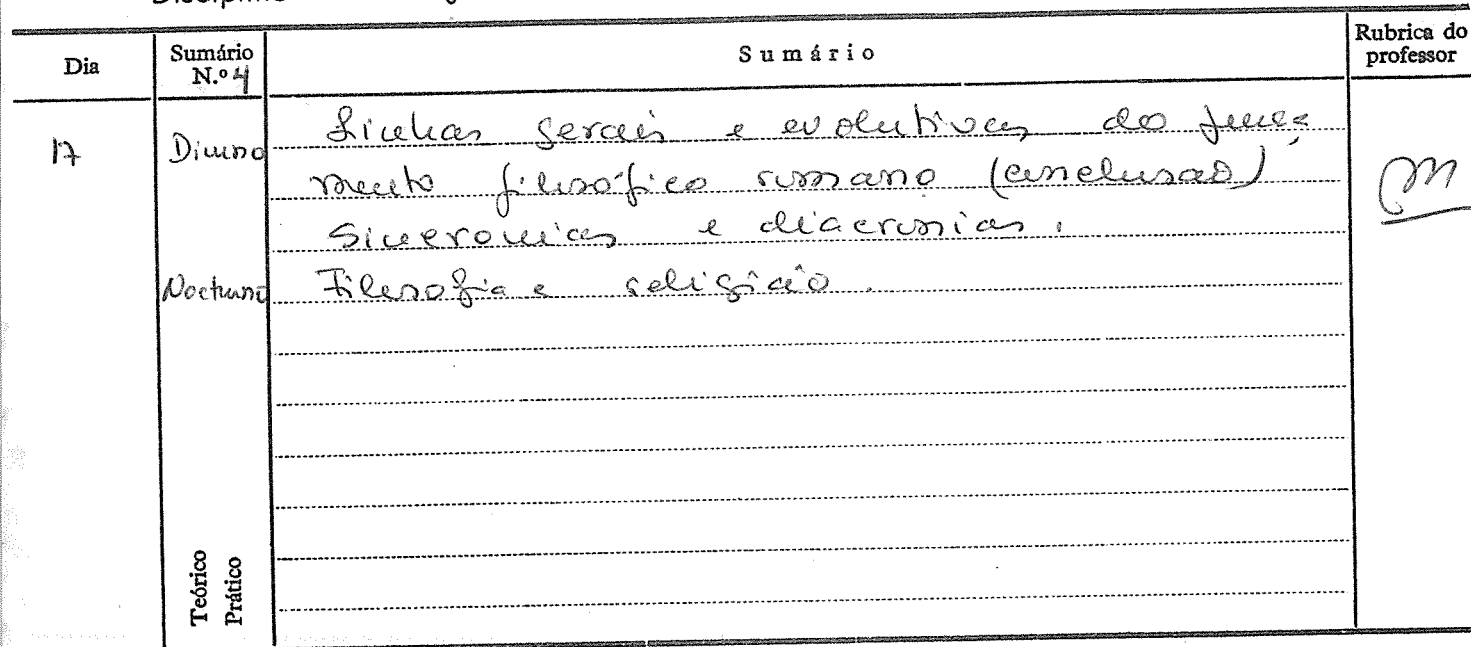 Dia
Sumário N.º 4
Sumário
Rubrica do professor
17
Diurno
Linhas gerais e evolutivas do pensa
mento filosófico romano (conclusão)
Sincronias e diacronias.
Nocturno
Filosofia e religião.
Teórico
Prático